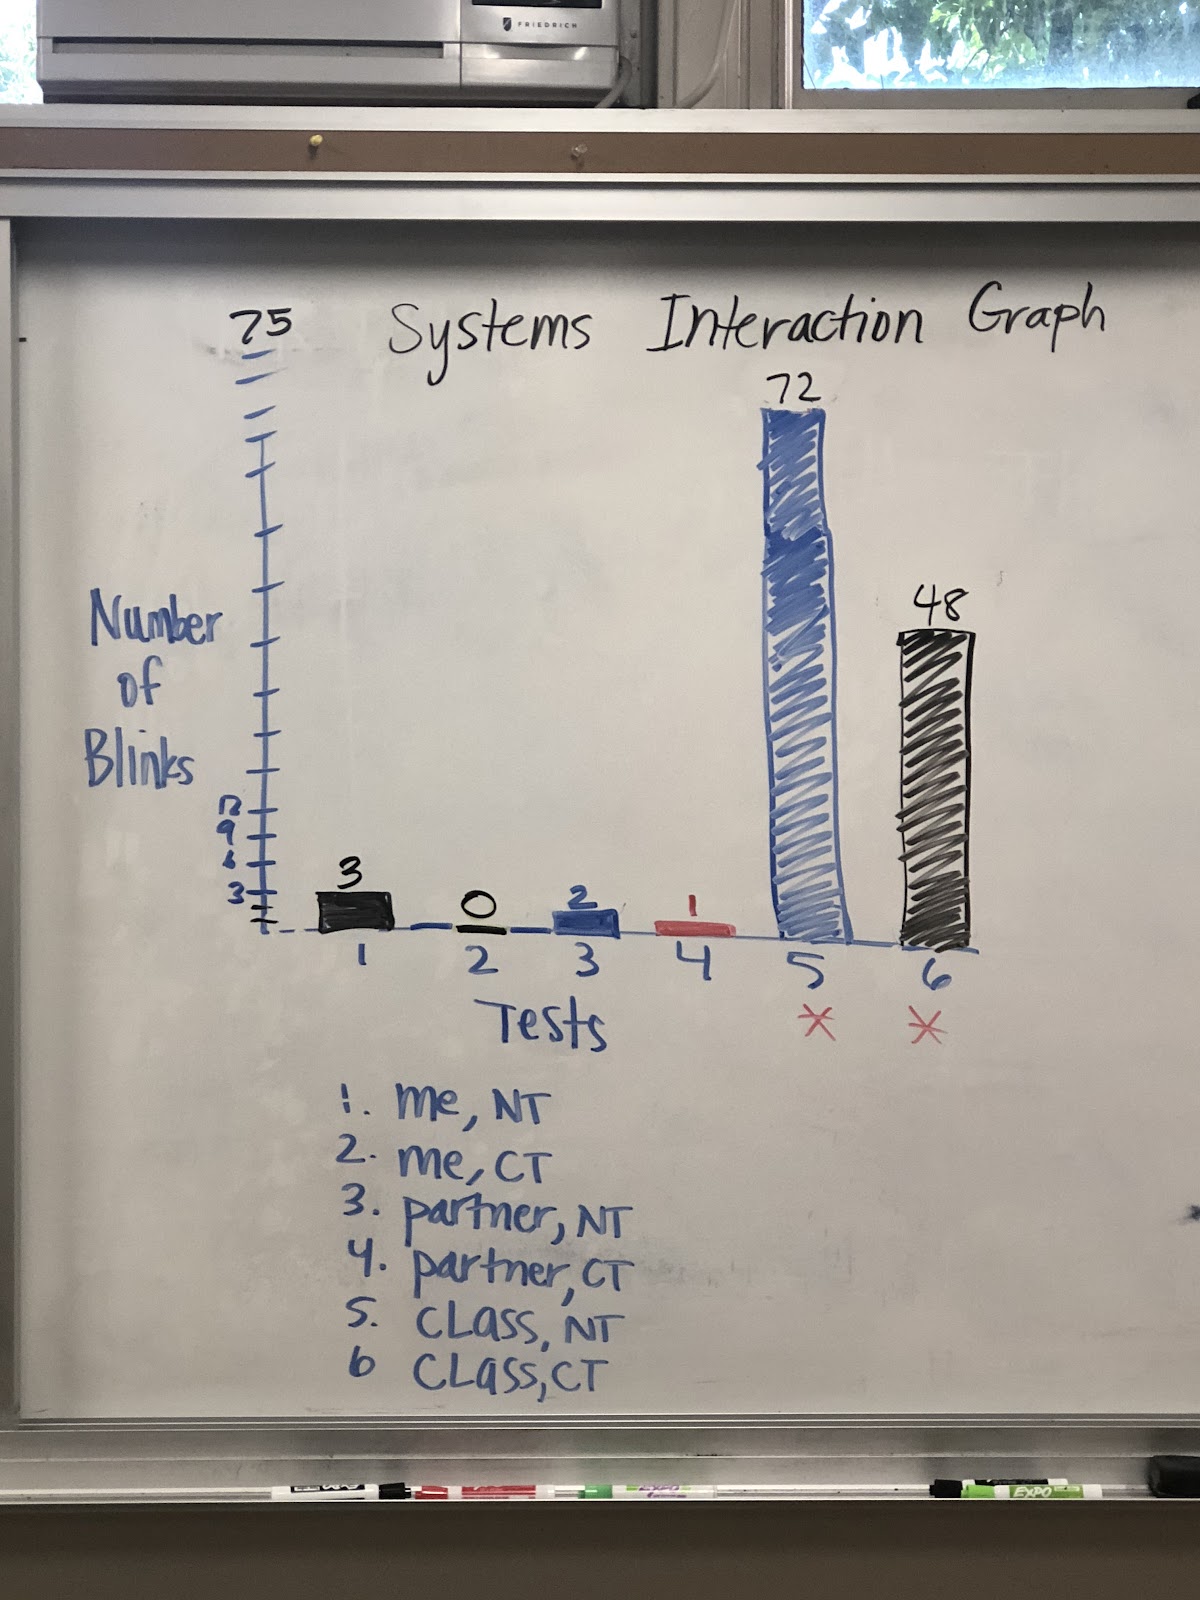 FRIEDRICH
75
Systems Interaction Graph
72
48
Number
of
Blinks
12
9
6
3
3
0
2
1
1 2 3 4 5 6
Tests
* *
1. me, NT
2. me, CT
3. partner, NT
4. partner, CT
5. CLass, NT
6 CLass, CT
EXPO